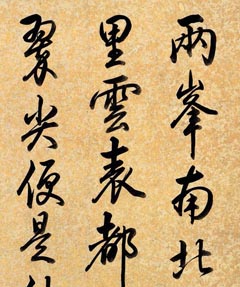 兩峯南北
里雲表都
翠尖便是